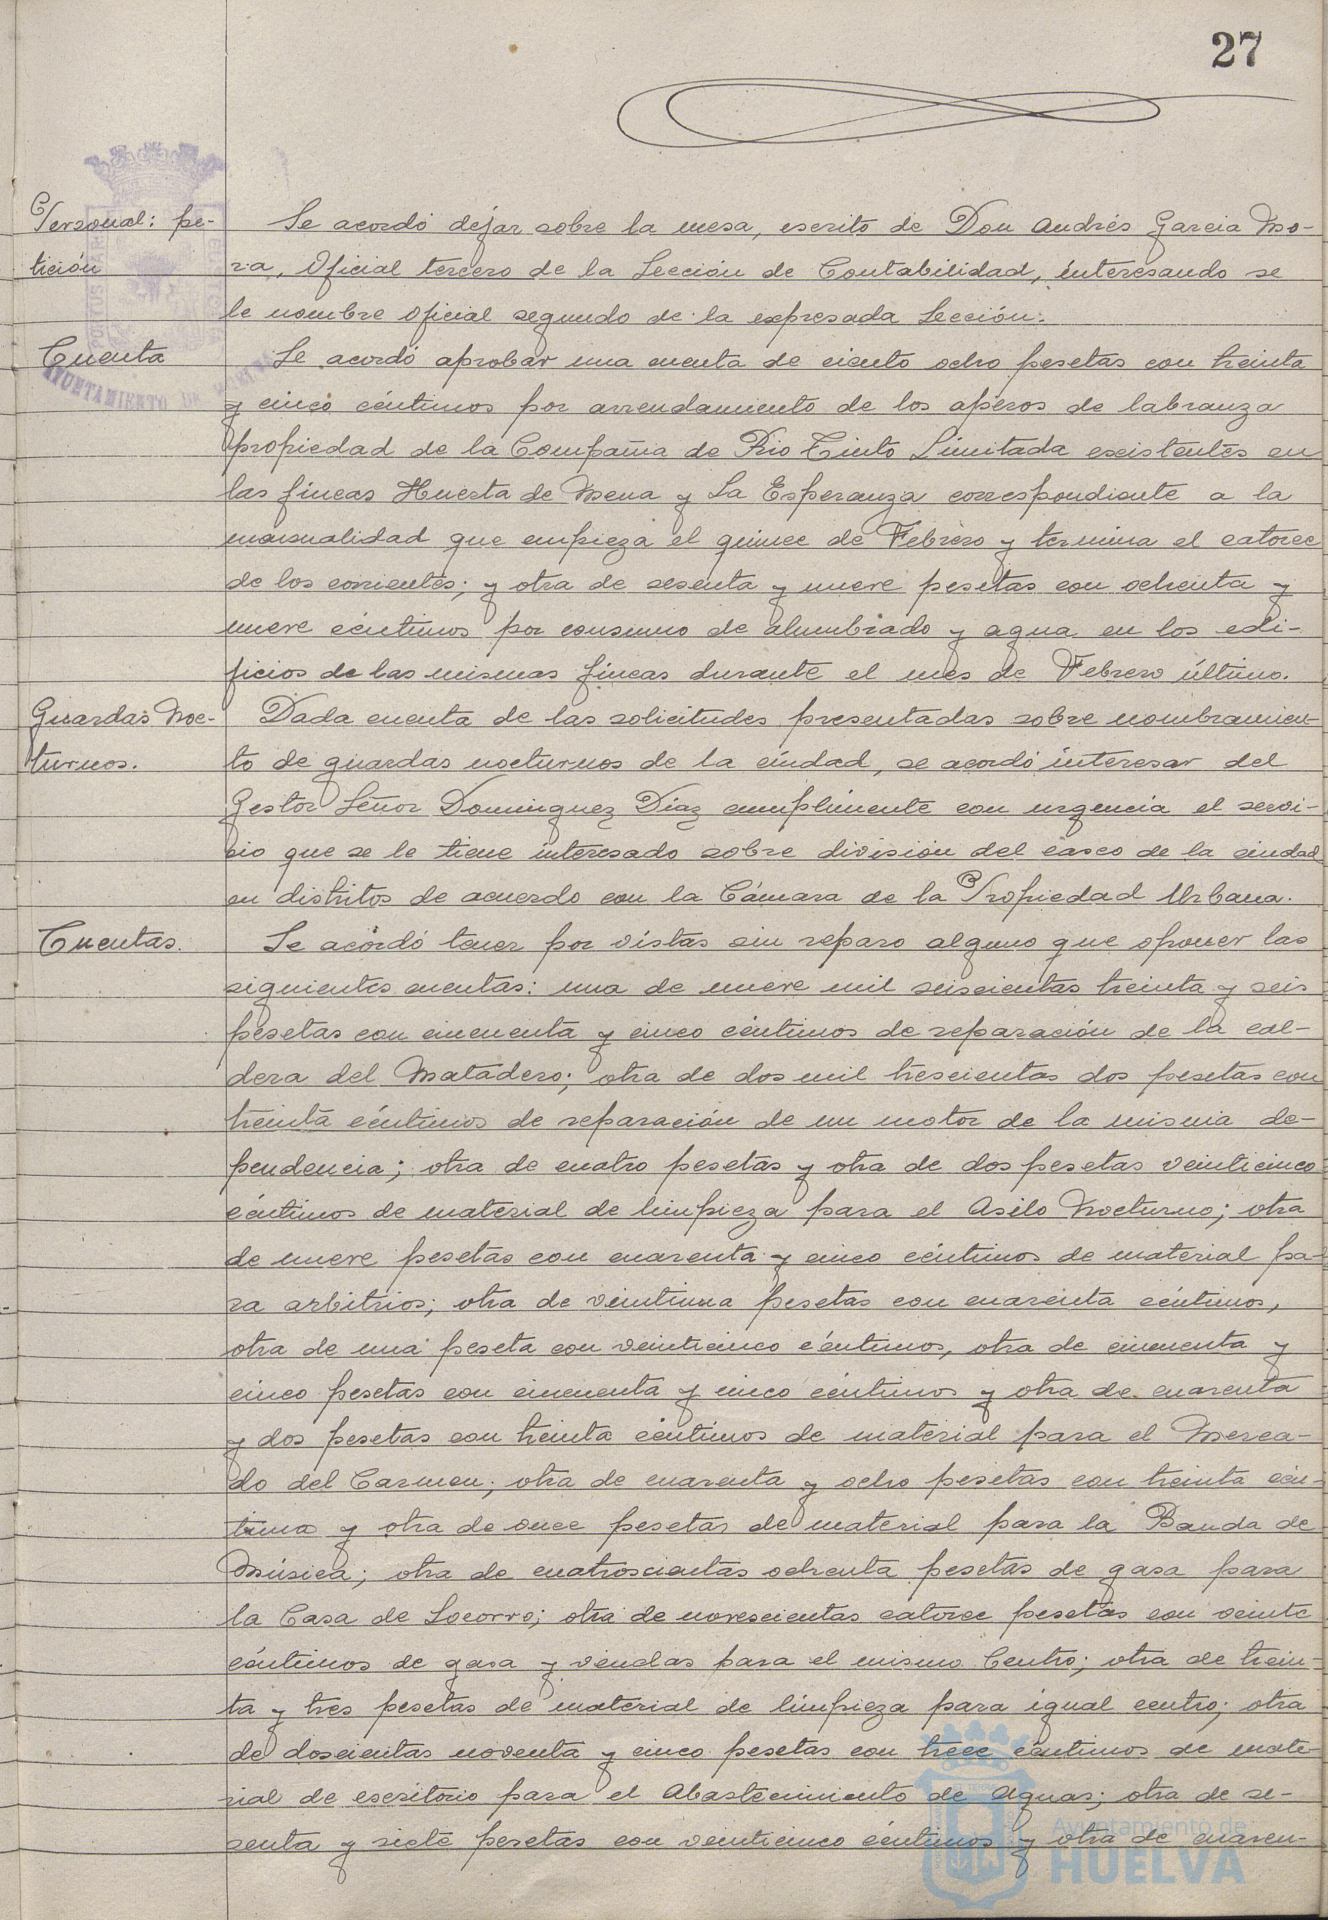 27
Personal: pe-
tición
Se acordó dejar sobre la mesa, escrito de Don Andrés Garcia Mo-
ra, Oficial tercero de la Sección de Contabilidad, interesando se
le nombre oficial segundo de la expresada Sección.
Cuenta
Se acordó aprobar una cuenta de ciento ocho pesetas con treinta
y cinco céntimos por arrendamiento de los apéros de labranza
propiedad de la Compañia de Rio Tinto Limitada existentes en
las fincas Huerta de Mena y La Esperanza correspondiente a la
mensualidad que empieza el quince de Febrero y termina el catorce
de los corrientes; y otra de sesenta y nueve pesetas con ochenta y
nueve céntimos por consumo de alumbrado y agua en los edi-
ficios de las mismas fincas durante el mes de Febrero último.
Guardas Noc-
turnos.
Dada cuenta de las solicitudes presentadas sobre nombramien-
to de guardas nocturnos de la ciudad, se acordó interesar del
Gestor Señor Dominguez Diaz cumplimente con urgencia el servi-
cio que se le tiene interesado sobre división del casco de la ciudad
en distritos de acuerdo con la Cámara de la Propiedad Urbana.
Cuentas.
Se acordó tener por vistas sin reparo alguno que oponer las
siguientes cuentas: una de nueve mil seiscientas treinta y seis
pesetas con cincuenta y cinco céntimos de reparación de la cal-
dera del Matadero; otra de dos mil trescientas dos pesetas con
treinta céntimos de reparación de un motor de la misma de-
pendencia; otra de cuatro pesetas y otra de dos pesetas veinticinco
céntimos de material de limpieza para el Asilo Nocturno; otra
de nueve pesetas con cuarenta y cinco céntimos de material pa-
ra arbitrios; otra de veintiuna pesetas con cuarenta céntimos,
otra de una peseta con veinticinco céntimos, otra de cincuenta y
cinco pesetas con cincuenta y cinco céntimos y otra de cuarenta
y dos pesetas con treinta céntimos de material para el Merca-
do del Carmen; otra de cuarenta y ocho pesetas con treinta cén-
timos y otra de once pesetas de material para la Banda de
Música; otra de cuatroscientas ochenta pesetas de gasa para
la Casa de Socorro; otra de novescientas catorce pesetas con veinte
céntimos de gasa y vendas para el mismo Centro; otra de trein-
ta y tres pesetas de material de limpieza para igual centro; otra
de doscientas noventa y cinco pesetas con trece céntimos de mate-
rial de escritorio para el Abastecimiento de Aguas; otra de se-
senta y siete pesetas con veinticinco céntimos y otra de cuaren-
AYUNTAMIENTO DE HUELVA
Ayuntamiento de
HUELVA